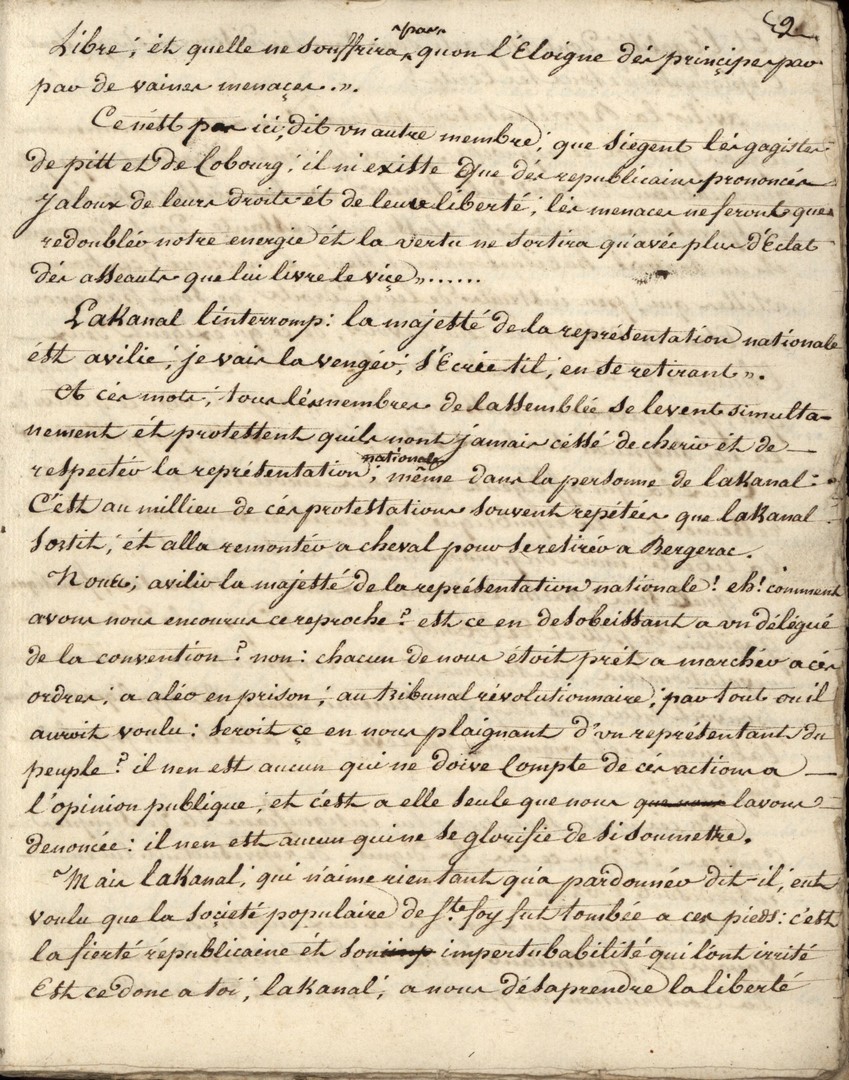 9
Libre; ét quelle ne souffrira pas quon l'Eloigne dés principes par
par de vaines menaçes.».
Ce nést pas ici, dit un autre membre; que siegent lés gagistes
de pitt et de Cobourg; il ni existe Que dés republicains prononcés
Jaloux de leurs droits ét de leur liberté; lés menaces ne feront que
redoubléo notre energie ét la vertu ne sortira qu'avéc plus d'Eclat
dés asseauts que lui livre le viçe»......
Lakanal l'interromp: la majesté de la représentation nationale
ést avilie; je vais la vengér; s'Ecrie til; en se retirant».
A cés mots; tous lés membres de lassemblée se levent simulta-
nement ét protestent quils nont jamais céssé de cherir ét de —
respectér la représentation nationale; même dans la personne de lakanal:
C'ést au millieu de cés protestations souvent repétées que lakanal
sortit; ét alla remontér a cheval pour se retirér a Bergerac.
Nous; avilir la majesté de la représentation nationale! eh! comment
avons nous encourus ce reproche? est ce en desobeissant a un délégué
de la convention? non: chacun de nous étoit prét a marchér a cés
ordres; a alér en prison; au tribunal révolutionnaire; par tout ou il
auroit voulu: seroit çe en nous plaignant d'un représentant du
peuple? il nen est aucun qui ne doive Compte de cés actions a —
l'opinion publique; et c'ést a elle seule que nous que nous lavons
denoncée: il nen est aucun qui ne se glorifie de si soumettre.
Mais lakanal; qui n'aime rien tant qu'a pardonnér dit-il; eut
voulu que la soçieté populaire de Ste foy fut tombée a ces pieds: c'est
la fierté républicaine ét son imp impertubabilité qui l'ont irrité
Est ce donc a toi; lakanal; a nous désaprendre la liberté